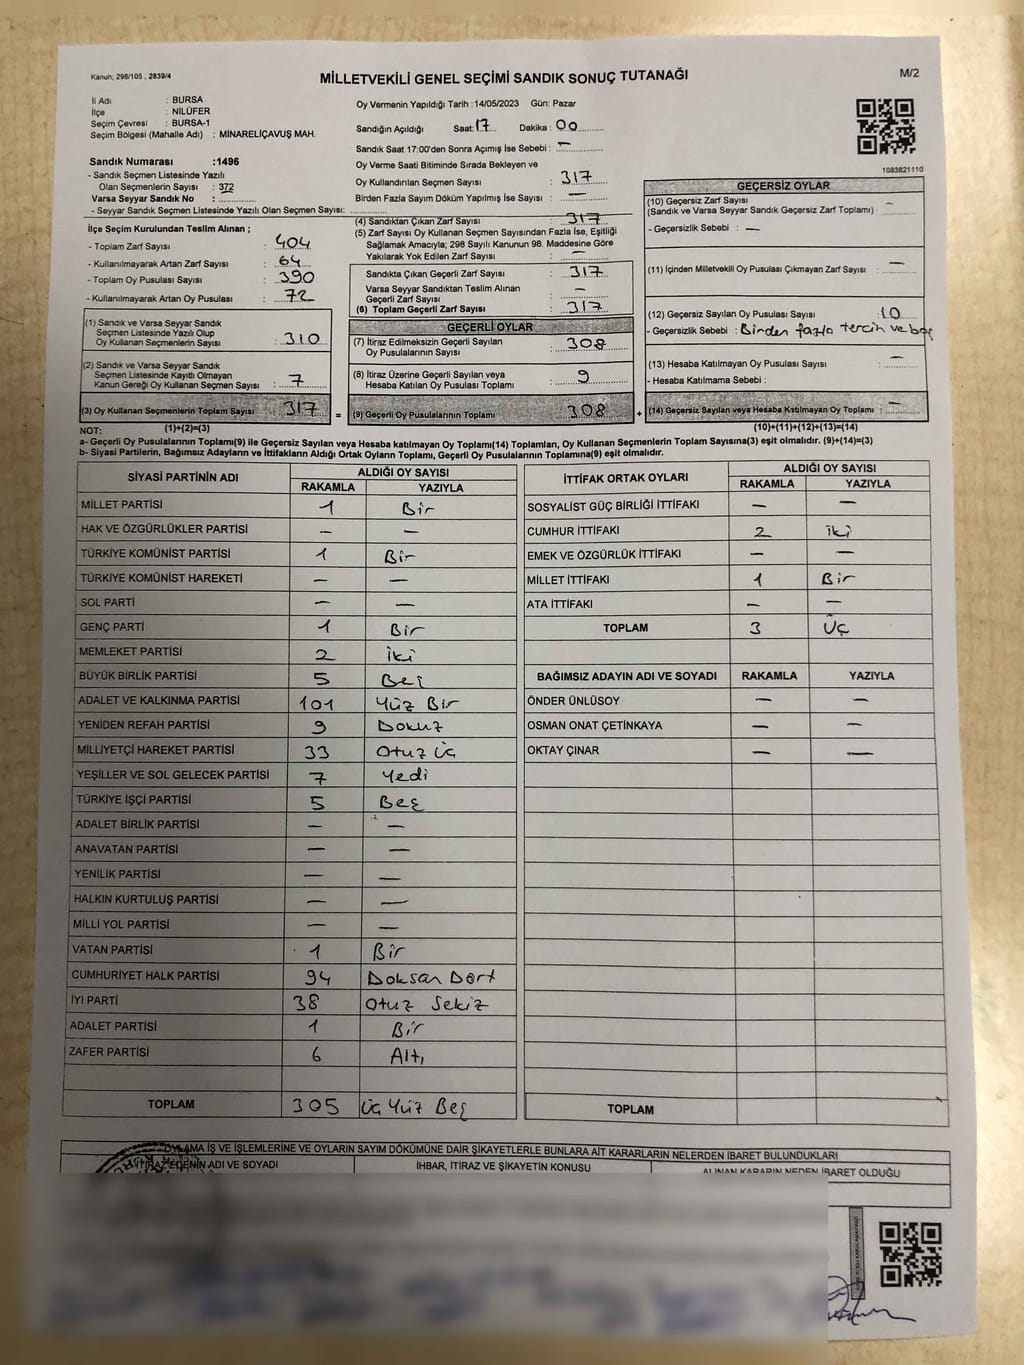 Kanun; 298/105 , 2839/4
MİLLETVEKİLİ GENEL SEÇİMİ SANDIK SONUÇ TUTANAĞI
M/2
İl Adı : BURSA
İlçe : NİLÜFER
Seçim Çevresi : BURSA-1
Seçim Bölgesi (Mahalle Adı) : MİNARELİÇAVUŞ MAH.
Sandık Numarası :1496
- Sandık Seçmen Listesinde Yazılı
Olan Seçmenlerin Sayısı : 372
Varsa Seyyar Sandık No :
- Seyyar Sandık Seçmen Listesinde Yazılı Olan Seçmen Sayısı:
İlçe Seçim Kurulundan Teslim Alınan ;
- Toplam Zarf Sayısı : 404
- Kullanılmayarak Artan Zarf Sayısı : 64
- Toplam Oy Pusulası Sayısı : 390
- Kullanılmayarak Artan Oy Pusulası : 72
(1) Sandık ve Varsa Seyyar Sandık
Seçmen Listesinde Yazılı Olup
Oy Kullanan Seçmenlerin Sayısı : 310
(2) Sandık ve Varsa Seyyar Sandık
Seçmen Listesinde Kayıtlı Olmayan
Kanun Gereği Oy Kullanan Seçmen Sayısı : 7
(3) Oy Kullanan Seçmenlerin Toplam Sayısı : 317 =
Oy Vermenin Yapıldığı Tarih :14/05/2023 Gün: Pazar
Sandığın Açıldığı Saat: 17 Dakika : 00
Sandık Saat 17:00'den Sonra Açımış İse Sebebi : —
Oy Verme Saati Bitiminde Sırada Bekleyen ve
Oy Kullandırılan Seçmen Sayısı : 317
Birden Fazla Sayım Döküm Yapılmış İse Sayısı : —
(4) Sandıktan Çıkan Zarf Sayısı : 317
(5) Zarf Sayısı Oy Kullanan Seçmen Sayısından Fazla İse, Eşitliği
Sağlamak Amacıyla; 298 Sayılı Kanunun 98. Maddesine Göre
Yakılarak Yok Edilen Zarf Sayısı : —
Sandıkta Çıkan Geçerli Zarf Sayısı : 317
Varsa Seyyar Sandıktan Teslim Alınan
Geçerli Zarf Sayısı : —
(6) Toplam Geçerli Zarf Sayısı : 317
GEÇERLİ OYLAR
(7) İtiraz Edilmeksizin Geçerli Sayılan
Oy Pusulalarının Sayısı : 308
(8) İtiraz Üzerine Geçerli Sayılan veya
Hesaba Katılan Oy Pusulası Toplamı : 9
(9) Geçerli Oy Pusulalarının Toplamı : 308 +
1083621110
GEÇERSİZ OYLAR
(10) Geçersiz Zarf Sayısı : —
(Sandık ve Varsa Seyyar Sandık Geçersiz Zarf Toplamı)
- Geçersizlik Sebebi : —
(11) İçinden Milletvekili Oy Pusulası Çıkmayan Zarf Sayısı : —
(12) Geçersiz Sayılan Oy Pusulası Sayısı : 10
- Geçersizlik Sebebi : Birden fazla tercih ve boş
(13) Hesaba Katılmayan Oy Pusulası Sayısı : —
- Hesaba Katılmama Sebebi :
(14) Geçersiz Sayılan veya Hesaba Katılmayan Oy Toplamı : —
NOT: (1)+(2)=(3) (10)+(11)+(12)+(13)=(14)
a- Geçerli Oy Pusulalarının Toplamı(9) ile Geçersiz Sayılan veya Hesaba katılmayan Oy Toplamı(14) Toplamları, Oy Kullanan Seçmenlerin Toplam Sayısına(3) eşit olmalıdır. (9)+(14)=(3)
b- Siyasi Partilerin, Bağımsız Adayların ve İttifakların Aldığı Ortak Oyların Toplamı, Geçerli Oy Pusulalarının Toplamına(9) eşit olmalıdır.
SİYASİ PARTİNİN ADI ALDIĞI OY SAYISI
RAKAMLA YAZIYLA
MİLLET PARTİSİ 1 Bir
HAK VE ÖZGÜRLÜKLER PARTİSİ — —
TÜRKİYE KOMÜNİST PARTİSİ 1 Bir
TÜRKİYE KOMÜNİST HAREKETİ — —
SOL PARTİ — —
GENÇ PARTİ 1 Bir
MEMLEKET PARTİSİ 2 iki
BÜYÜK BİRLİK PARTİSİ 5 Beş
ADALET VE KALKINMA PARTİSİ 101 Yüz Bir
YENİDEN REFAH PARTİSİ 9 Dokuz
MİLLİYETÇİ HAREKET PARTİSİ 33 Otuz üç
YEŞİLLER VE SOL GELECEK PARTİSİ 7 Yedi
TÜRKİYE İŞÇİ PARTİSİ 5 Beş
ADALET BİRLİK PARTİSİ — —
ANAVATAN PARTİSİ — —
YENİLİK PARTİSİ — —
HALKIN KURTULUŞ PARTİSİ — —
MİLLİ YOL PARTİSİ — —
VATAN PARTİSİ 1 Bir
CUMHURİYET HALK PARTİSİ 94 Doksan Dört
İYİ PARTİ 38 Otuz Sekiz
ADALET PARTİSİ 1 Bir
ZAFER PARTİSİ 6 Altı
TOPLAM 305 Üç Yüz Beş
İTTİFAK ORTAK OYLARI ALDIĞI OY SAYISI
RAKAMLA YAZIYLA
SOSYALİST GÜÇ BİRLİĞİ İTTİFAKI — —
CUMHUR İTTİFAKI 2 iki
EMEK VE ÖZGÜRLÜK İTTİFAKI — —
MİLLET İTTİFAKI 1 Bir
ATA İTTİFAKI — —
TOPLAM 3 Üç
BAĞIMSIZ ADAYIN ADI VE SOYADI RAKAMLA YAZIYLA
ÖNDER ÜNLÜSOY — —
OSMAN ONAT ÇETİNKAYA — —
OKTAY ÇINAR — —
TOPLAM
OYLAMA İŞ VE İŞLEMLERİNE VE OYLARIN SAYIM DÖKÜMÜNE DAİR ŞİKAYETLERLE BUNLARA AİT KARARLARIN NELERDEN İBARET BULUNDUKLARI
İTİRAZ EDENİN ADI VE SOYADI İHBAR, İTİRAZ VE ŞİKAYETİN KONUSU ALINAN KARARIN NEDEN İBARET OLDUĞU